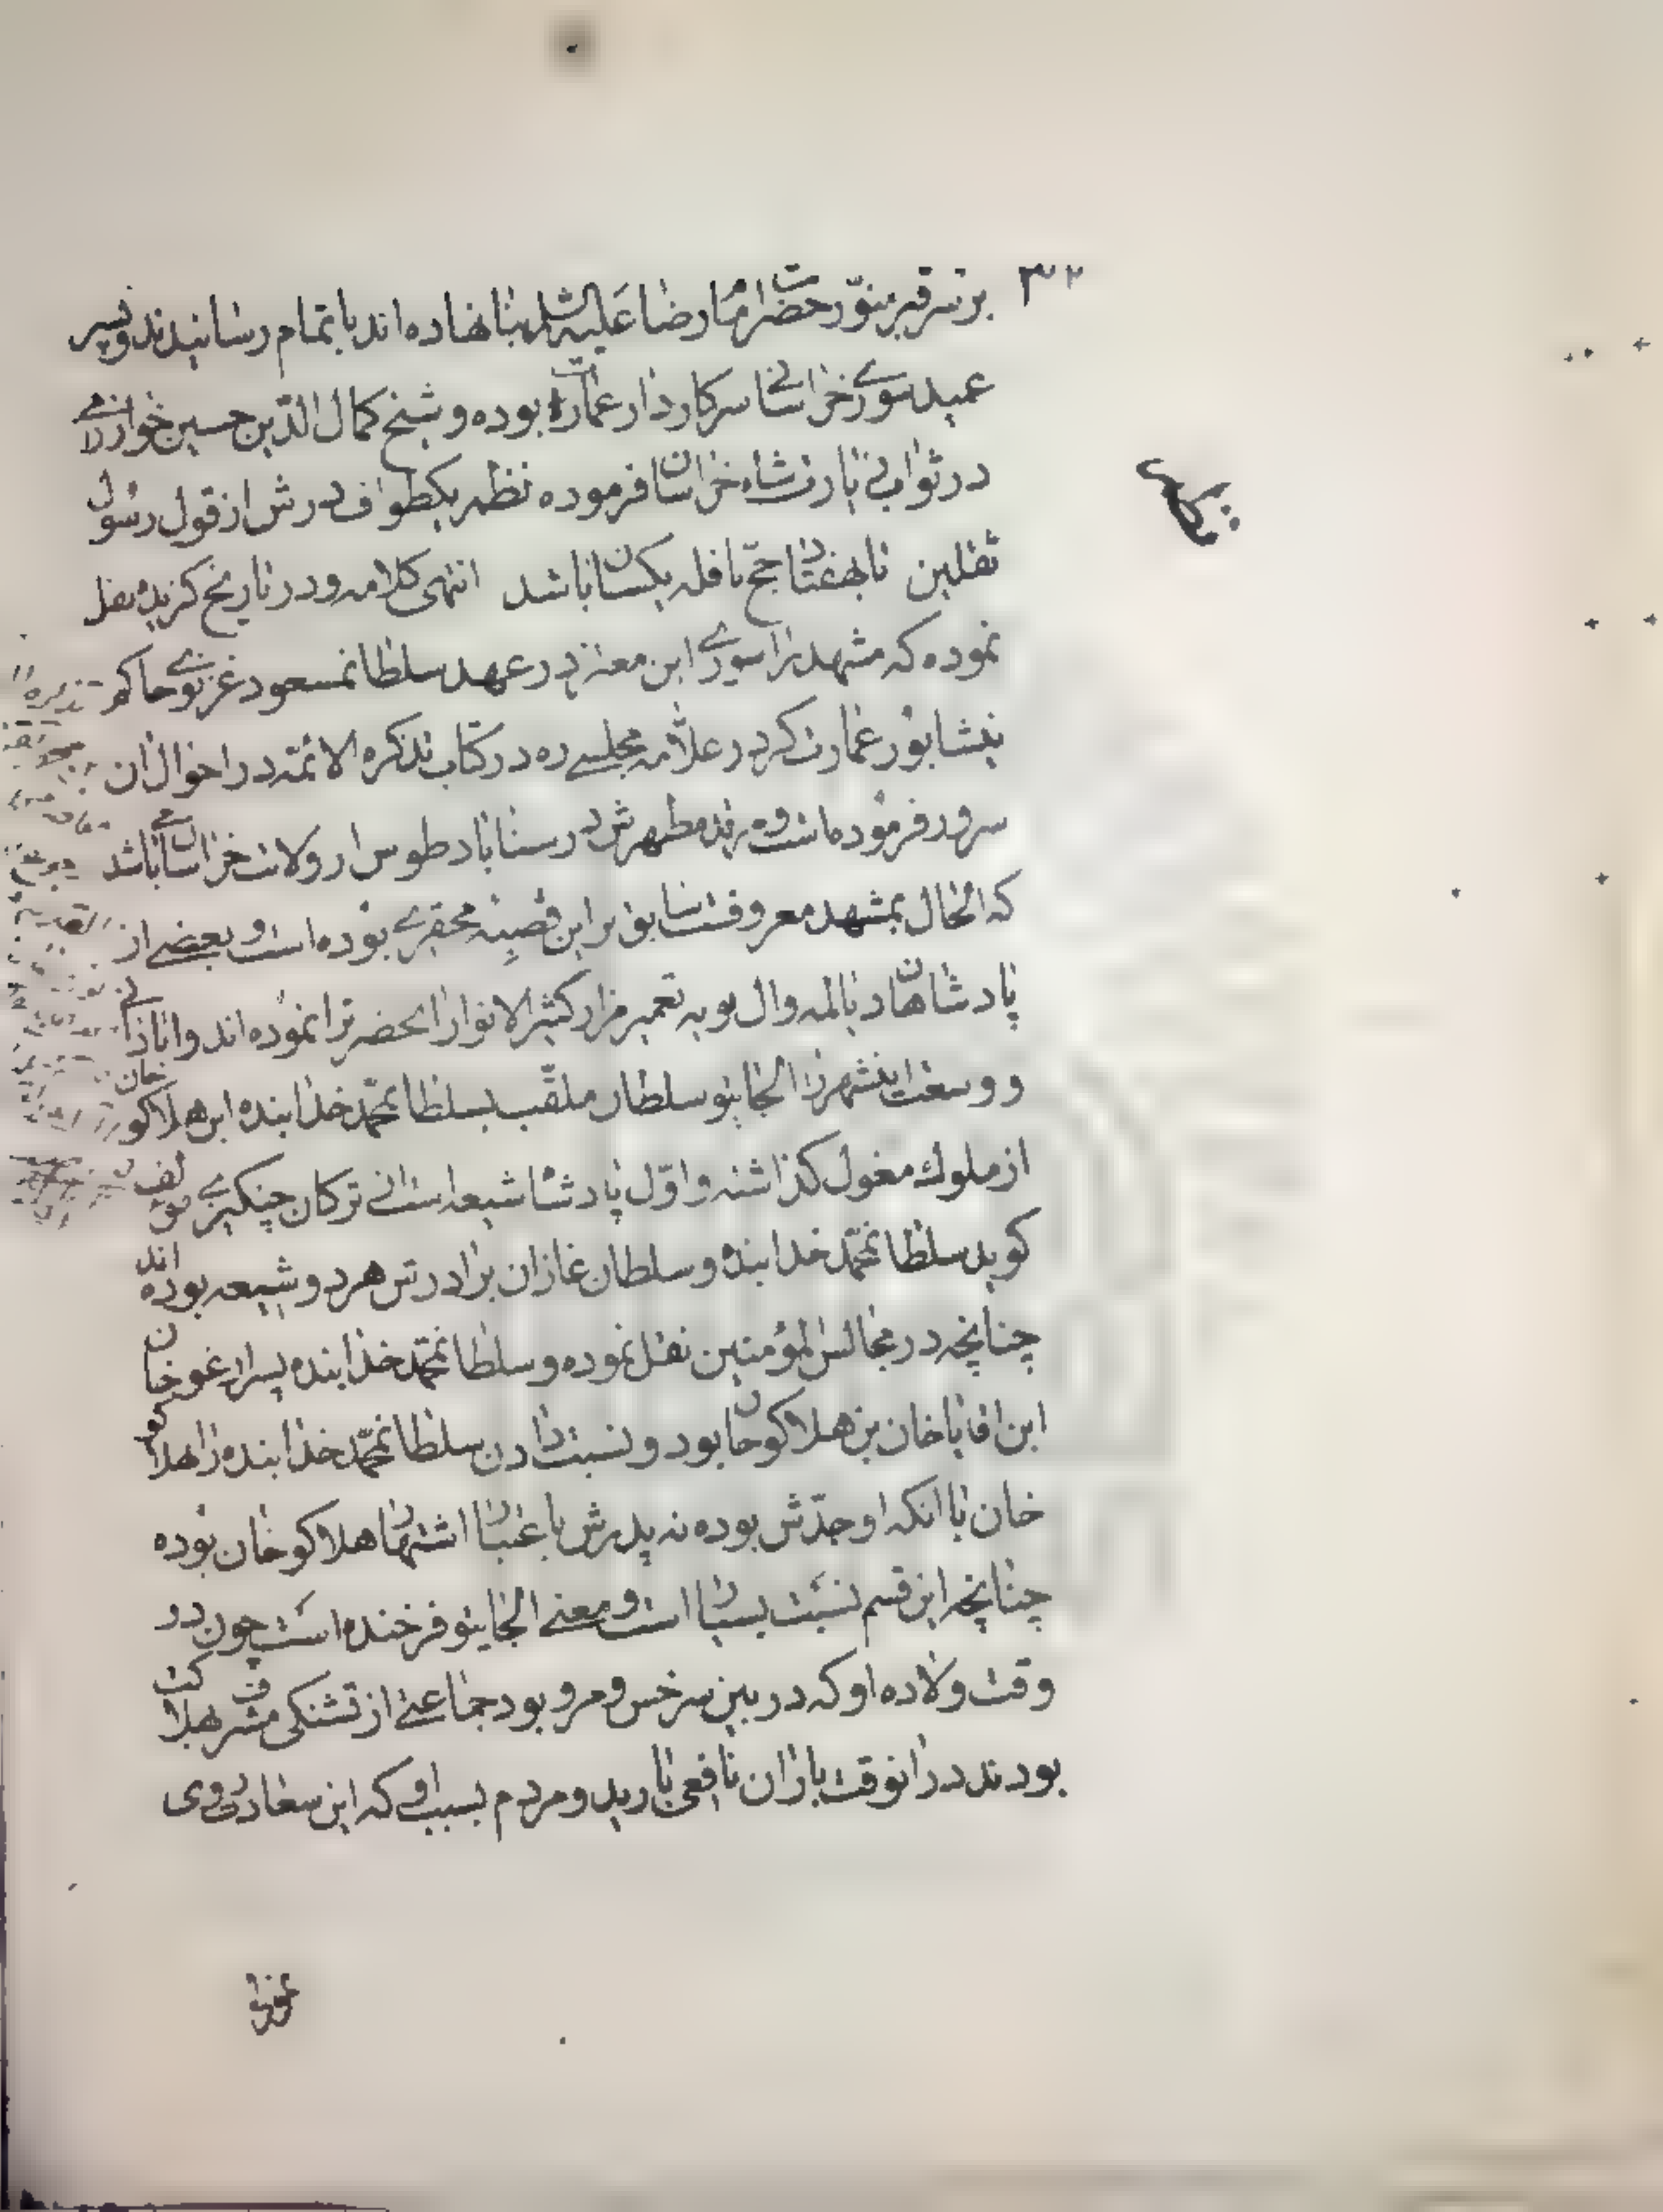 ۳۲
بر سر قبر منوّر حضرت امام رضا علیه السلام بنا نهاده اند باتمام رسانیدند و پسر
عمید سوری خراسانی سرکار دار عمارت بوده و شیخ کمال الدّین حسین خوارزمی
در ثواب زیارت شاه خراسان فرموده نظم یکطواف درش از قول رسول
نظم
ثقلین تا بهفتاد حجّ نافله یکسان باشد انتهی کلامه و در تاریخ گزیده نقل
نموده که مشهد را سوری ابن معتز در عهد سلطان مسعود غزنوی حاکم
نیشابور عمارت کرد و علاّمه مجلسی ره در کتاب تذکره الائمّه در احوال ان
سرور فرموده است و مرقد مطهرش در سناباد طوس از ولایت خراسان می باشد
که الحال بمشهد معروفست سابق بر این قصبهٔ محقری بوده است و بعضی از
پادشاهان دیالمه و ال بویه تعمیر مزار کثیر الانوار انحضرت را نموده اند و ابادانی
و وسعت اینشهر را الجایتو سلطان ملقّب بسلطان محمّد خدابنده ابن هلاکو خان
از ملوك مغول گذاشته و اوّل پادشاه شیعه است از ترکان چنگیزی مؤلف
گوید سلطان محمّد خدابنده و سلطان غازان برادرش هر دو شیعه بوده اند
چنانچه در مجالس المؤمنین نقل نموده و سلطان محمّد خدابنده پسر ارغو خان
ابن اقاباخان بن هلاکو خان بود و نسبت دادن سلطان محمّد خدابنده را بهلاکو
خان با انکه او جدّش بوده نه پدرش باعتبار اشتهار هلاکو خان بوده
چنانچه این قسم نسبت بسیار است و معنی الجایتو فرخنده است چون در
وقت ولاده او که در بین سرخس و مرو بود جماعتی از تشنگی مشرف بهلاکت
بودند در انوقت باران نافعی بارید و مردم بسبب او که این سعادت روی